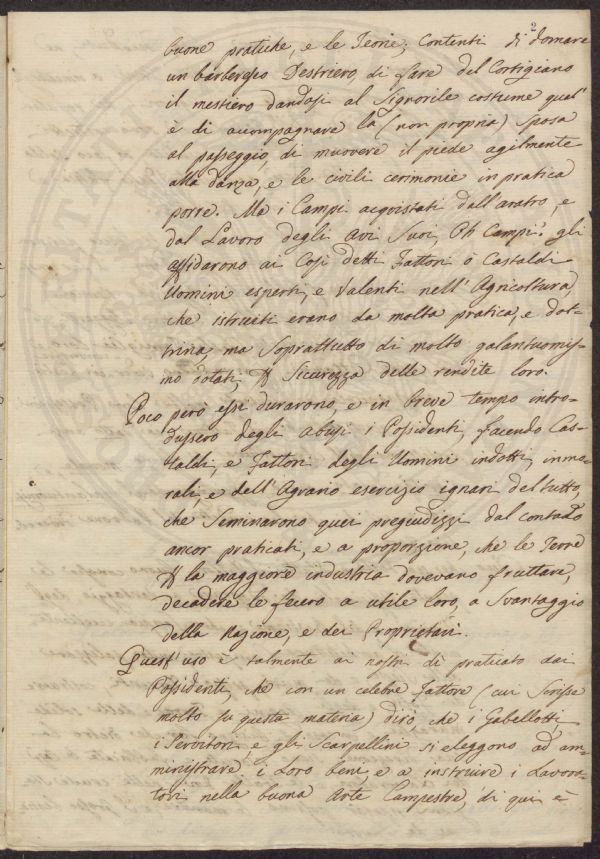 2
buone pratiche, e le Teorie; Contenti di domare
un barberesco Destriero, di fare del Cortigiano
il mestiero dandosi al Signorile costume qual'
è di acompagnare la (non propria) Sposa
al passeggio, di muovere il piede agilmente
alla danza, e le civili cerimonie in pratica
porre. Ma i Campi acquistati dall'aratro, e
dal Lavoro degli Avi Suoi, Oh Campi! gli
affidarono ai Così detti Fattori o Castaldi
Uomini esperti, e Valenti nell'Agricoltura,
che istruiti erano da molta pratica, e dot-
trina, ma Soprattutto di molto galantuomis-
mo dotati, Sicurezza delle rendite loro.
Poco però essi durarono, e in breve tempo intro-
dussero degli Abusi i Possidenti, facendo Cas-
taldi, e Fattori degli Uomini indotti, inmo-
rali, e dell'Agrario esercizio ignari del tutto,
che Seminarono quei pregiudizzi dal contado
ancor praticati, e a proporzione, che le Terre
la maggiore industria dovevano fruttare,
decadere le fecero a utile loro, a Svantaggio
della Nazione, e dei Proprietari.
Quest'uso è talmente ai nostri dì praticato dai
Possidenti, che con un celebre Fattore (cui Scrisse
molto su questa materia) dirò, che i Gabellotti,
i Servitori, e gli Scarpellini si eleggono ad am-
ministrare i Loro beni, e a instruire i Lavora-
tori nella buona Arte Campestre, di qui è